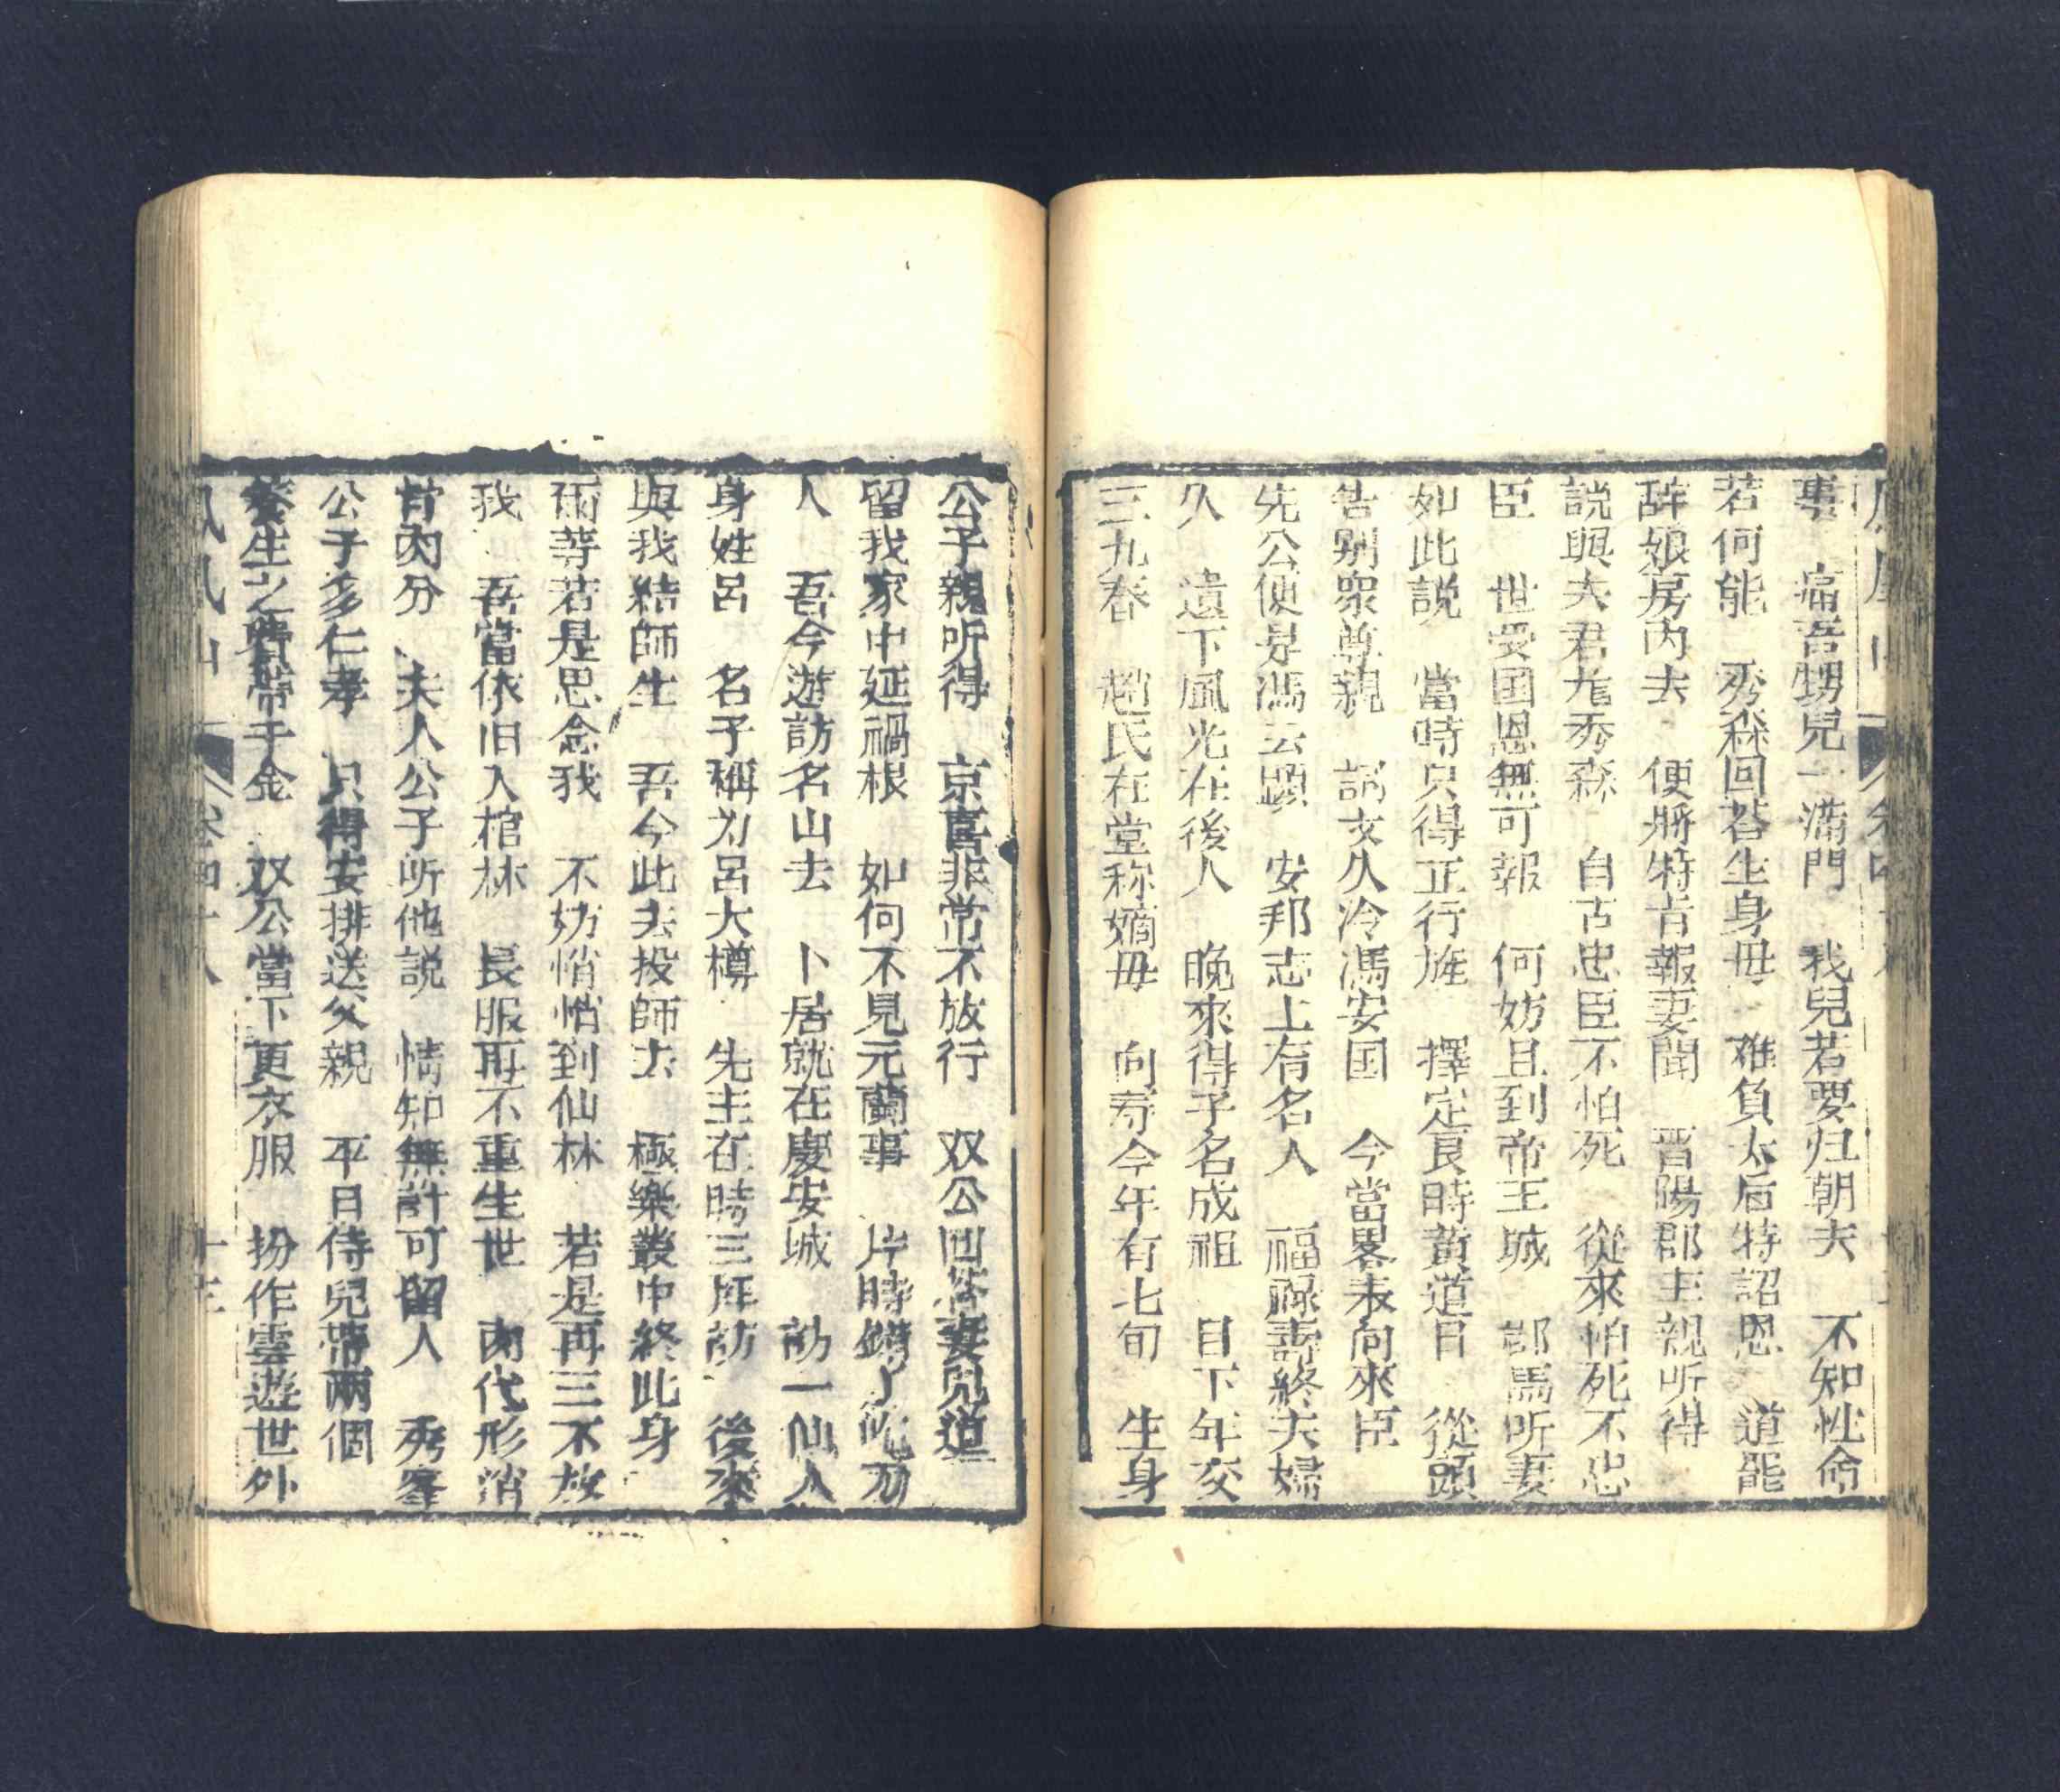 事 痛吾甥兒一滿門 我兒若要归朝夫 不知性命
若何能 秀森回荅生身毋 难負太后特詔恩 道罷
辞娘房內去 便將特吉報妻聞 晋陽郡主親听得
説與夫君 秀森 自古忠臣不怕死 從來怕死不忠
臣 世受国恩無可報 何妨且到帝王城 郎馬听妻
如此説 當時只得正行旌 擇定良時黃道日 從頭
告别衆尊親 詞文久冷馮安国 今當畧表向來臣
先公便是馮云顕 安邦志上有名人 福禄壽終夫婦
久 遺下風光在後人 晚來得子名成祖 目下年交
三九春 趙氏在堂称嫡毋 向寿今年有七旬 生身
公子親听得 京喜非常不放行 双公回答妻兒道
留我家中延禍根 如何不見元蘭事 片時錯了 刃
人 吾今遊訪名山去 卜居就在慶安城 訪一仙人
身姓呂 名子稱为呂大樽 先主在時三拜訪 後來
與我結師生 吾今此去投師去 極樂叢中終此身
爾等若是思念我 不妨悄悄到仙林 若是再三不放
我 吾當依旧入棺林 長服再不重生世 肉代形消
骨肉分 夫人公子听他説 情知無計可留人 秀峯
公子多仁孝 只得安排送父親 平日侍兒帶兩個
養生之費帶千金 双公當下更衣服 扮作雲遊世外
鳳凰山 卷四十八 十三